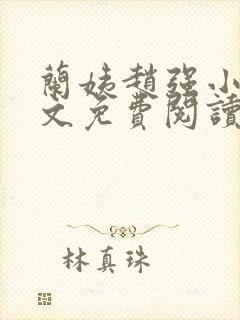 蘭姨趙强小
文免費閱讀
林真珠